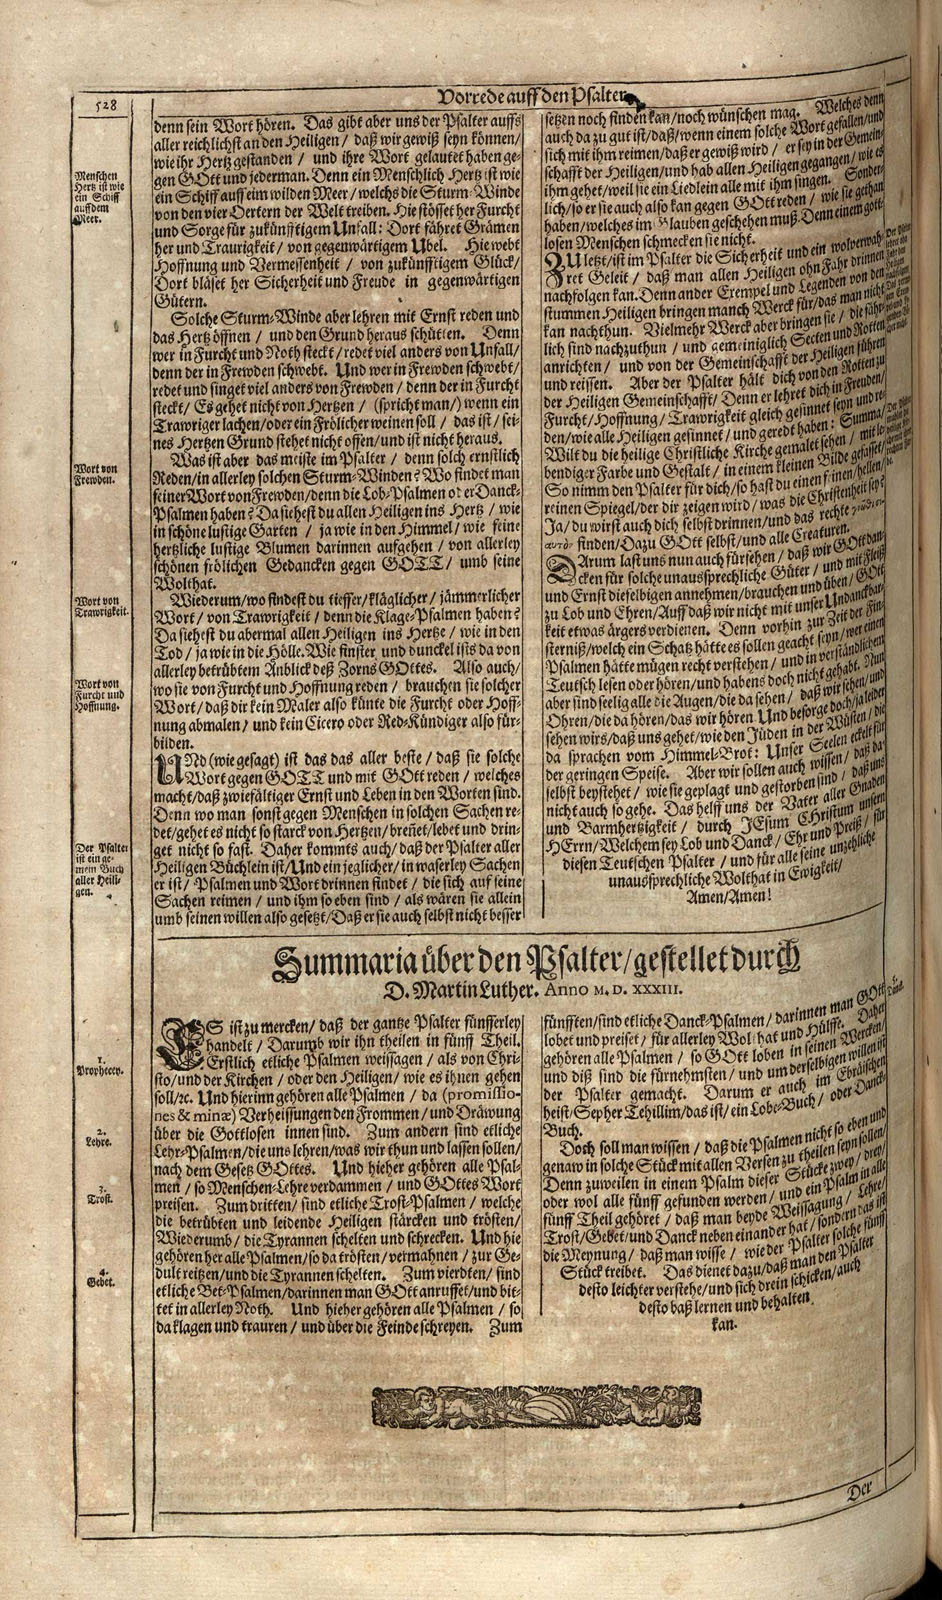 528
Vorrede auff den Psalter.
denn sein Wort hören. Das gibt aber uns der Psalter auffs
aller reichlichst an den Heiligen / daß wir gewiß seyn können/
wie ihr Hertz gestanden / und ihre Wort gelautet haben ge-
gen GOtt und jederman. Denn ein Menschlich Hertz ist wie
ein Schiff auff eim wilden Meer / welchs die Sturm-Winde
von den vier Oertern der Welt treiben. Hie stösset her Furcht
und Sorge für zukünfftigem Unfall: Dort fähret Grämen
her und Traurigkeit / von gegenwärtigem Ubel. Hie webt
Hoffnung und Vermessenheit / von zukünfftigem Glück/
Dort bläset her Sicherheit und Freude in gegenwärtigen
Gütern.
Solche Sturm-Winde aber lehren mit Ernst reden und
das Hertz öffnen / und den Grund heraus schütten. Denn
wer in Furcht und Noth steckt / redet viel anders von Unfall/
denn der in Frewden schwebt. Und wer in Frewden schwebt/
redet und singet viel anders von Frewden / denn der in Furcht
steckt / Es gehet nicht von Hertzen / (spricht man/) wenn ein
Trawriger lachen / oder ein Frölicher weinen soll / das ist / sei-
nes Hertzen Grund stehet nicht offen / und ist nicht heraus.
Was ist aber das meiste im Psalter / denn solch ernstlich
Reden / in allerley solchen Sturm-Winden? Wo findet man
feiner Wort von Frewden / denn die Lob-Psalmen oder Danck-
Psalmen haben? Da siehest du allen Heiligen ins Hertz / wie
in schöne lustige Garten / ja wie in den Himmel / wie feine
hertzliche lustige Blumen darinnen aufgehen / von allerley
schönen frölichen Gedancken gegen GOTT / umb seine
Wolthat.
Wiederum / wo findest du tieffer / kläglicher / jämmerlicher
Wort / von Trawrigkeit / denn die Klage-Psalmen haben?
Da siehest du abermal allen Heiligen ins Hertze / wie in den
Tod / ja wie in die Hölle. Wie finster und dunckel ists da von
allerley betrübtem Anblick deß Zorns GOttes. Also auch/
wo sie von Furcht und Hoffnung reden / brauchen sie solcher
Wort / daß dir kein Maler also künte die Furcht oder Hoff-
nung abmalen / und kein Cicero oder Red-Kündiger also für-
bilden.
UNd (wie gesagt) ist das das aller beste / daß sie solche
Wort gegen GOTT und mit GOtt reden / welches
macht / daß zwiefältiger Ernst und Leben in den Worten sind.
Denn wo man sonst gegen Menschen in solchen Sachen re-
det / gehet es nicht so starck von Hertzen / breñet / lebet und drin-
get nicht so fast. Daher kommts auch / daß der Psalter aller
Heiligen Büchlein ist / Und ein jeglicher / in waserley Sachen
er ist / Psalmen und Wort drinnen findet / die sich auf seine
Sachen reimen / und ihm so eben sind / als wären sie allein
umb seinen willen also gesetzt / Daß er sie auch selbst nicht besser
Menschen
Hertz ist wie
ein Schiff
auff dem
Meer.
Wort von
Frewden.
Wort von
Trawrigkeit.
Wort von
Furcht und
Hoffnung.
Der Psalter
ist ein ge-
mein Buch
aller Heili-
gen.
setzen noch finden kan / noch wünschen mag. Welches denn
auch da zu gut ist / daß / wenn einem solche Wort gefallen / und
sich mit ihm reimen / daß er gewiß wird / er sey in der Gemein-
schafft der Heiligen / und hab allen Heiligen gegangen / wie es
ihm gehet / weil sie ein Liedlein alle mit ihm singen. Sonder-
lich / so er sie auch also kan gegen GOtt reden / wie sie gethan
haben / welches im Glauben geschehen muß. Denn einem gott-
losen Menschen schmecken sie nicht.
ZUletzt / ist im Psalter die Sicherheit und ein wolverwah-
ret Geleit / daß man allen Heiligen ohn Fahr drinnen
nachfolgen kan. Denn ander Exempel und Legenden von den
stummen Heiligen bringen manch Werck für / das man nicht
kan nachthun. Vielmehr Werck aber bringen sie / die fähr-
lich sind nachzuthun / und gemeiniglich Secten und Rotten
anrichten / und von der Gemeinschafft der Heiligen führen
und reissen. Aber der Psalter hält dich von den Rotten zu
der Heiligen Gemeinschafft / Denn er lehret dich in Freuden/
Furcht / Hoffnung / Trawrigkeit gleich gesinnet seyn und re-
den / wie alle Heiligen gesinnet / und geredt haben: Summa/
Wilt du die heilige Christliche Kirche gemalet sehen / mit le-
bendiger Farbe und Gestalt / in einem kleinen Bilde gefasset/
So nimm den Psalter für dich / so hast du einen feinen / hellen/
reinen Spiegel / der dir zeigen wird / was die Christenheit sey?
Ja / du wirst auch dich selbst drinnen / und das rechte
finden / Dazu GOtt selbst / und alle Creaturen.
DArum last uns nun auch fürsehen / daß wir GOtt dan-
cken für solche unaussprechliche Güter / und mit Fleiß
und Ernst dieselbigen annehmen / brauchen und üben / GOtt
zu Lob und Ehren / Auff daß wir nicht mit unser Undanckbar-
keit etwas ärgers verdienen. Denn vorhin zur Zeit der Fin-
sterniß / welch ein Schatz hätte es sollen geacht seyn / wer einen
Psalmen hätte mügen recht verstehen / und in verständlichen
Teutsch lesen oder hören / und habens doch nicht gehabt. Nun
aber sind seelig alle die Augen / die da sehen / daß wir sehen / und
Ohren / die da hören / das wir hören. Und besorge doch / ja leider
sehen wirs / daß uns gehet / wie den Jüden in der Wüsten / die
da sprachen vom Himmel-Brot: Unser Seelen eckelt für
der geringen Speise. Aber wir sollen auch wissen / daß da-
selbst beystehet / wie sie geplagt und gestorben sind / daß uns
nicht auch so gehe. Das helff uns der Vater aller Gnaden
und Barmhertzigkeit / durch JEsum Christum unsern
HErrn / Welchem sey Lob und Danck / Ehr und Preiß / für
diesen Teutschen Psalter / und für alle seine unzehliche
unaussprechliche Wolthat in Ewigkeit/
Amen / Amen!
Summaria über den Psalter / gestellet durch
D. Martin Luther. Anno M. D. XXXIII.
ES ist zu mercken / daß der gantze Psalter fünfferley
handelt / Darumb wir ihn theilen in fünff Theil.
Erstlich etliche Psalmen weissagen / als von Chri-
sto / und der Kirchen / oder den Heiligen / wie es ihnen gehen
soll / etc. Und hierinn gehören alle Psalmen / da (promissio-
nes & minæ) Verheissungen den Frommen / und Dräwung
über die Gottlosen innen sind. Zum andern sind etliche
Lehr-Psalmen / die uns lehren / was wir thun und lassen sollen/
nach dem Gesetz GOttes. Und hieher gehören alle Psal-
men / so Menschen-Lehre verdammen / und GOttes Wort
preisen. Zum dritten / sind etliche Trost-Psalmen / welche
die betrübten und leidende Heiligen stärcken und trösten/
Wiederumb / die Tyrannen schelten und schrecken. Und hie
gehören her alle Psalmen / so da trösten / vermahnen / zur Ge-
dult reitzen / und die Tyrannen schelten. Zum vierdten / sind
etliche Bet-Psalmen / darinnen man GOtt anruffet / und bit-
tet in allerley Noth. Und hieher gehören alle Psalmen / so
da klagen und trauren / und über die Feinde schreyen. Zum
1.
Prophecey.
2.
Lehre.
3.
Trost.
4.
Gebet.
fünfften / sind etliche Danck-Psalmen / darinnen man GOtt
lobet und preiset / für allerley Wolthat und Hülffe. Daher
gehören alle Psalmen / so GOtt loben in seinen Wercken/
und diß sind die fürnehmsten / und um derselbigen willen ist
der Psalter gemacht. Darum er auch im Ebräischen
heist / Sepher Tehillim / das ist / ein Lobe-Buch / oder Danck-
Buch.
Doch soll man wissen / daß die Psalmen nicht so eben und
genaw in solche Stück mit allen Versen zu theilen seyn sollen/
Denn zuweilen in einem Psalm dieser Stücke zwey / drey/
oder wol alle fünff gefunden werden / und ein Psalm in alle
fünff Theil gehöret / daß man beyde Weissagung / Lehre/
Trost / Gebet / und Danck neben einander hat / sondern das ist
die Meynung / daß man wisse / wie der Psalter solche fünff
Stück treibet. Das dienet dazu / daß man den Psalter
desto leichter verstehe / und sich drein schicken / auch
desto baß lernen und behalten
kan.
5.
Danck.
Der